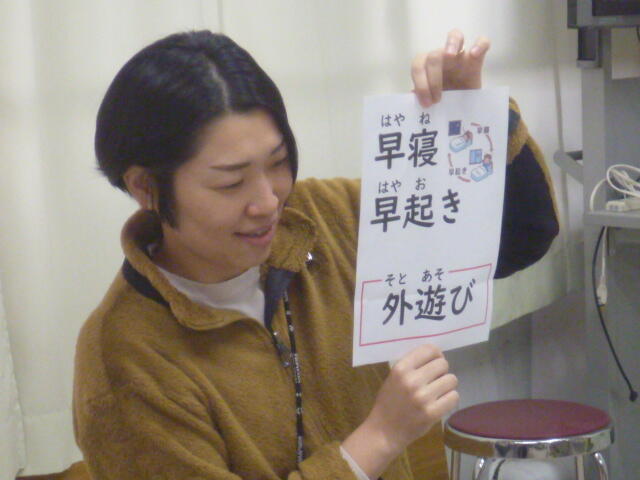 はや ね
早寝
早寝
早起き
はや お
早起き
そと あそ
外遊び